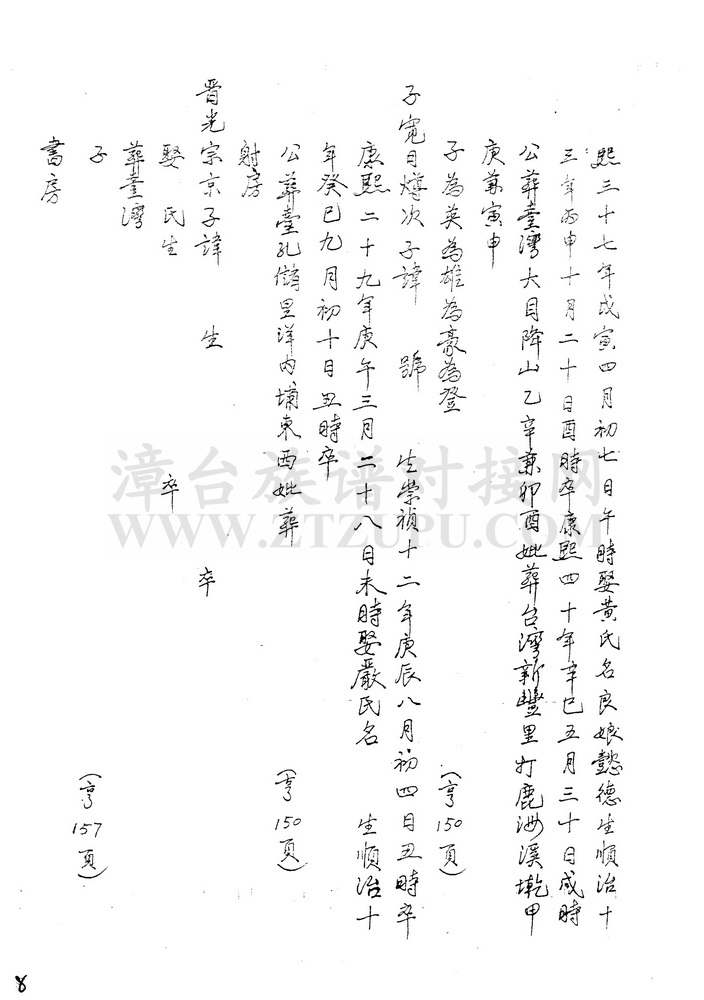 熙三十七年戊寅四月初七日午時娶黃氏名良娘懿德生順治十
三年丙申十月二十日酉時卒康熙四十年辛巳五月三十日戌時
公葬臺灣大目降山乙辛兼卯酉妣葬台灣新豐里打鹿洲溪墘甲
庚兼寅申
子為英為雄為豪為登 (亨150頁)
子寬日燁次子諱 號 生崇禎十二年庚辰八月初四日丑時卒
康熙二十九年庚午三月二十八日未時娶嚴氏名 生順治十
年癸巳九月初十日丑時卒
公葬臺孔儲里洋內埔東西妣葬
射房 (亨150頁)
晋光宗京子諱 生 卒
娶 氏生 卒
葬臺灣
子 (亨157頁)
書房
8
漳台族谱对接网
WWW.ZTZUPU.COM